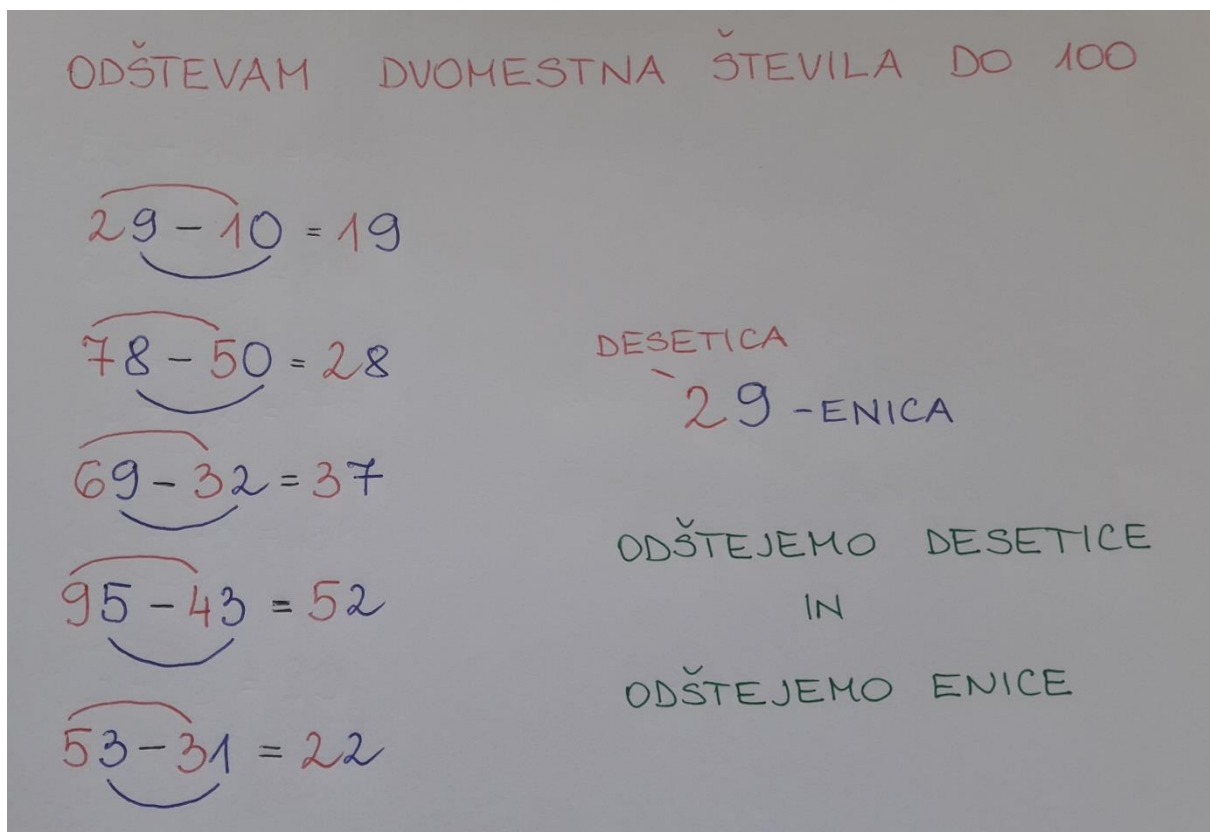 ODŠTEVAM DVOMESTNA ŠTEVILA DO 100
29 - 10 = 19
78 - 50 = 28
69 - 32 = 37
95 - 43 = 52
53 - 31 = 22
DESETICA
29 - ENICA
ODŠTEJEMO DESETICE
IN
ODŠTEJEMO ENICE